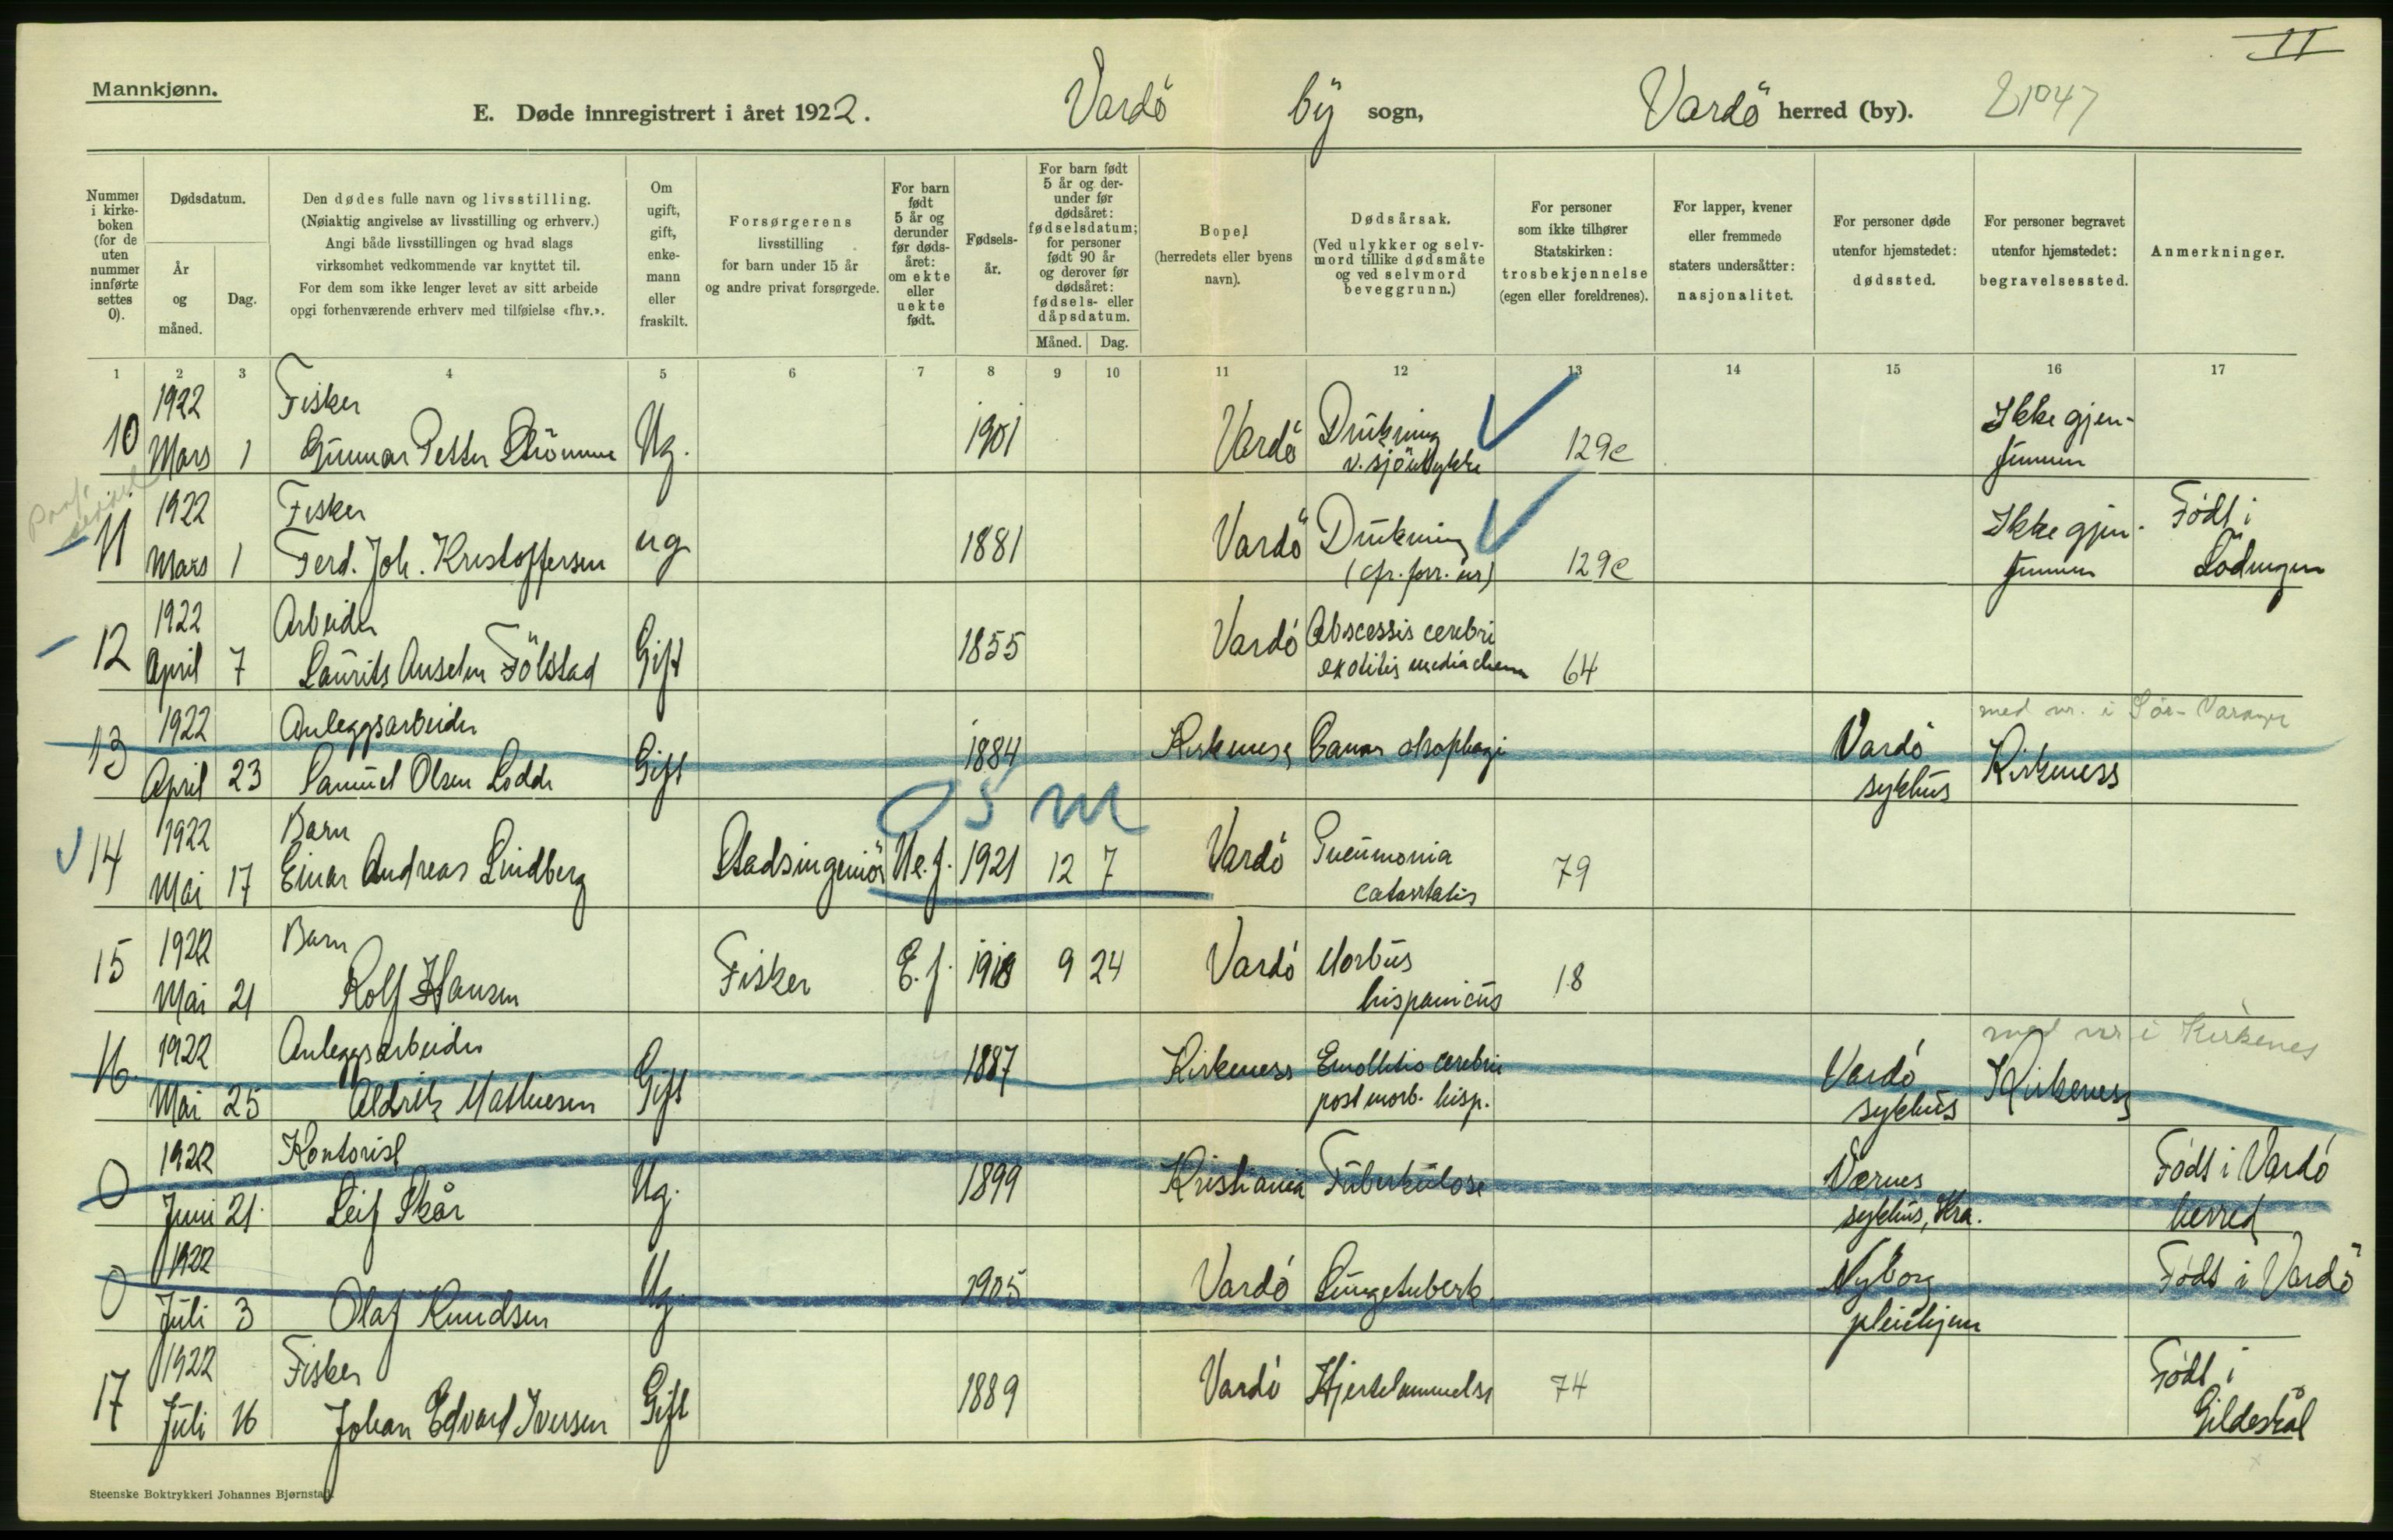 II
Mannkjønn.
E. Døde innregistrert i året 1922. Vardö by sogn, Vardö herred (by). 21047
Nummer i kirke-boken (for de uten nummer innførte settes 0).
Dødsdatum.
År og måned.
Dag.
Den dødes fulle navn og livsstilling.
(Nøiaktig angivelse av livsstilling og erhverv.)
Angi både livsstillingen og hvad slags
virksomhet vedkommende var knyttet til.
For dem som ikke lenger levet av sitt arbeide
opgi forhenværende erhverv med tilføielse «fhv.».
Om ugift, gift, enke-mann eller fraskilt.
Forsørgerens
livsstilling
for barn under 15 år
og andre privat forsørgede.
For barn født 5 år og derunder før døds-året: om ekte eller uekte født.
Fødsels-år.
For barn født 5 år og der-under før dødsåret: fødselsdatum; for personer født 90 år og derover før dødsåret: fødsels- eller dåpsdatum.
Måned. Dag.
Bopel
(herredets eller byens
navn).
Dødsårsak.
(Ved ulykker og selv-
mord tillike dødsmåte
og ved selvmord
beveggrunn.)
For personer
som ikke tilhører
Statskirken:
trosbekjennelse
(egen eller foreldrenes).
For lapper, kvener
eller fremmede
staters undersåtter:
nasjonalitet.
For personer døde
utenfor hjemstedet:
dødssted.
For personer begravet
utenfor hjemstedet:
begravelsessted.
Anmerkninger.
1 2 3 4 5 6 7 8 9 10 11 12 13 14 15 16 17
1922 Fisker
10 Mars 1 Gunnar Petter Strömme Ug. 1901 Vardö Drukning v. sjöulykke 129c Ikke gjen-
funnen
1922 Fisker
11 Mars 1 Ferd. Joh. Kristoffersen ug 1881 Vardö Drukning (cfr. forr. nr) 129c Ikke gjen-
funnen Födt i Lödingen
1922 Arbeider
12 April 7 Laurits Anselm Fölstad Gift 1855 Vardö Abscessis cerebri
ex otitis media chron 64
med nr. i Sör-Varanger
1922 Anleggsarbeider
13 April 23 Samuel Olsen Lodde Gift 1884 Kirkeness Cancer øsophagi Vardö sykhus Kirkeness
O S M
1922 Barn
14 Mai 17 Einar Andreas Lindberg Stadsingeniör Ue. f. 1921 12 7 Vardö Pneumonia
catarrhalis 79
1922 Barn
15 Mai 21 Rolf Hansen Fisker E. f. 1918 9 24 Vardö Morbus
hispanicus 18
med nr i Kirkenes
1922 Anleggsarbeider
16 Mai 25 Aldrik Mathiesen Gift 1887 Kirkeness Emollitio cerebri
post morb. hisp. Vardö sykhus Kirkeness
1922 Kontorist
0 Juni 21. Leif Skår Ug. 1899 Kristiania Tuberkulose Værnes sykhus, Kra. Födt i Vardö
herred
1922
0 Juli 3 Olaf Knudsen Ug. 1905 Vardö Lungetuberk. Nyborg pleiehjem Födt i Vardö
1922 Fisker
17 Juli 16 Johan Edvard Iversen Gift 1889 Vardö Hjertelammelse 74 Födt i
Gildeskål
Steenske Boktrykkeri Johannes Bjørnstad.